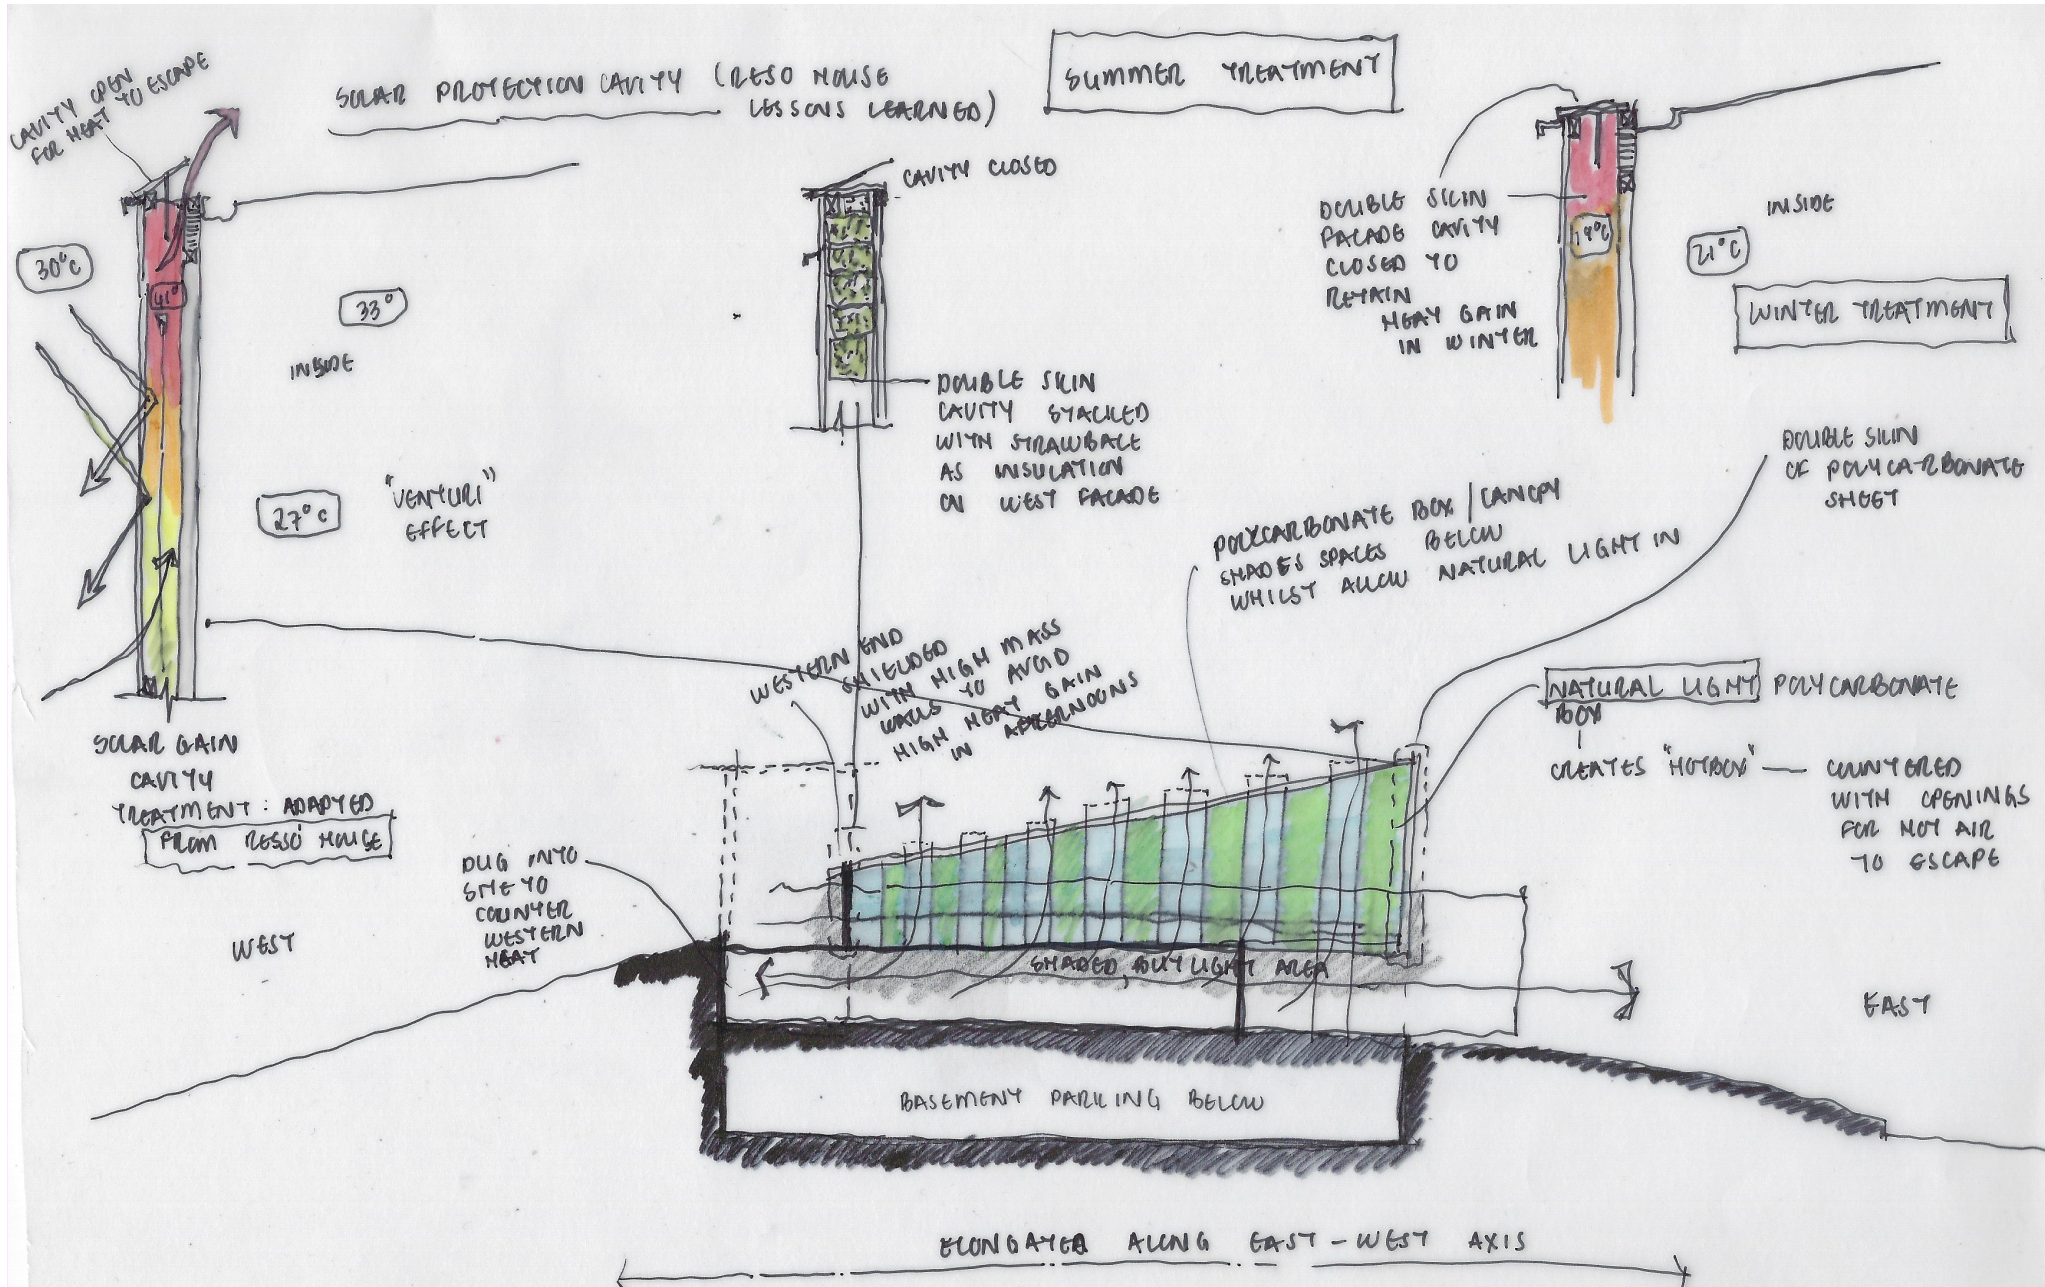 CAVITY OPEN
FOR HEAT TO ESCAPE
SOLAR PROTECTION CAVITY (RESO HOUSE
LESSONS LEARNED)
SUMMER TREATMENT
CAVITY CLOSED
30°C
41°
33°
INSIDE
27°C
"VENTURI"
EFFECT
DOUBLE SKIN
CAVITY STACKED
WITH STRAWBALE
AS INSULATION
ON WEST FACADE
DOUBLE SKIN
FACADE CAVITY
CLOSED TO
RETAIN
HEAT GAIN
IN WINTER
19°C
INSIDE
21°C
WINTER TREATMENT
DOUBLE SKIN
OF POLYCARBONATE
SHEET
POLYCARBONATE BOX / CANOPY
SHADES SPACES BELOW
WHILST ALLOW NATURAL LIGHT IN
WESTERN END
SHIELDED
WITH HIGH MASS
WALLS TO AVOID
HIGH HEAT GAIN
IN AFTERNOONS
NATURAL LIGHT POLYCARBONATE
BOX
CREATES "HOTBOX" — COUNTERED
WITH OPENINGS
FOR HOT AIR
TO ESCAPE
SOLAR GAIN
CAVITY
TREATMENT: ADAPTED
FROM RESSO HOUSE
DUG INTO
SITE TO
COUNTER
WESTERN
HEAT
WEST
SHADED, BUT LIGHT AREA
EAST
BASEMENT PARKING BELOW
ELONGATED ALONG EAST-WEST AXIS